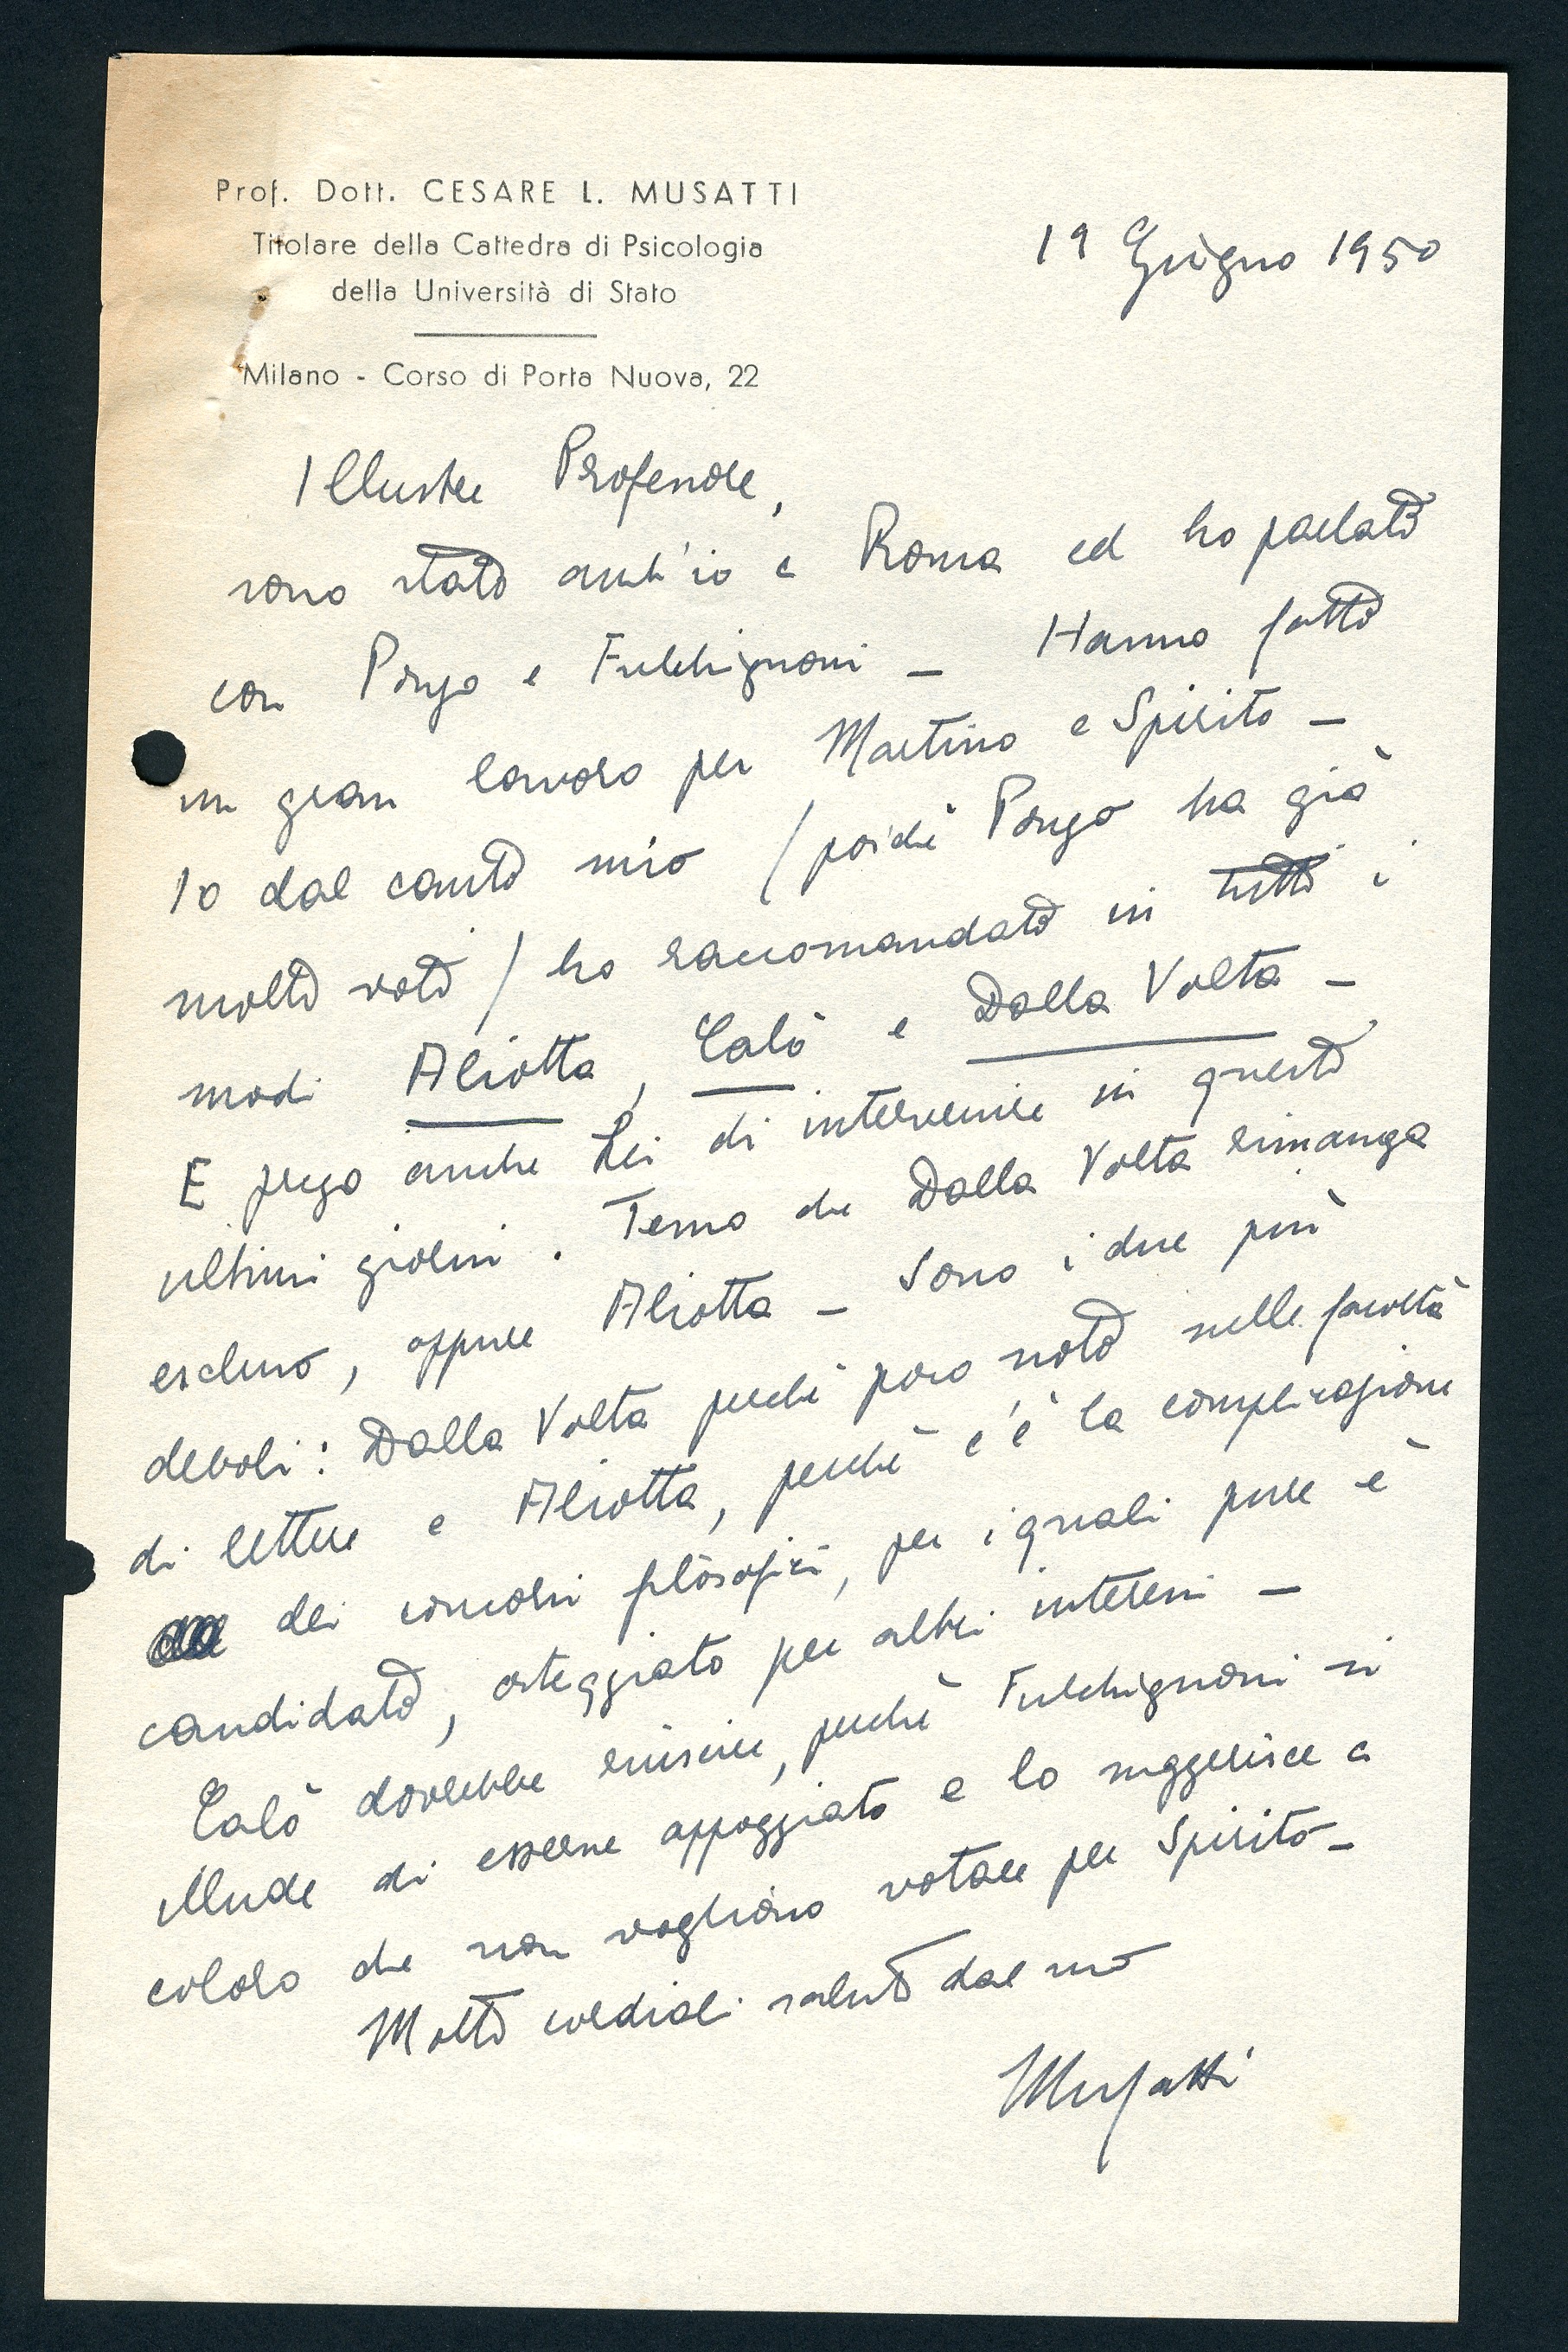 Prof. Dott. CESARE L. MUSATTI
Titolare della Cattedra di Psicologia
della Università di Stato
Milano - Corso di Porta Nuova, 22
19 Giugno 1950
Illustre Professore,
sono stato anch'io a Roma ed ho parlato
con Ponzo e Fulchignoni - Hanno fatto
un gran lavoro per Martino e Spirito -
Io dal canto mio (poichè Ponzo ha già
molti voti) ho raccomandato in tutti i
modi Aliotta, Calò e Dalla Volta -
E prego anche Lei di intervenire in questi
ultimi giorni. Temo che Dalla Volta rimanga
escluso, oppure Aliotta - Sono i due più
deboli: Dalla Volta perchè poco noto nelle facoltà
di lettere e Aliotta, perchè c'è la complicazione
dei concorsi filosofici, per i quali pure è
candidato, osteggiato per altri interessi -
Calò dovrebbe riuscire, perchè Fulchignoni si
illude di esserne appoggiato e lo suggerisce a
coloro che non vogliono votare per Spirito -
Molti cordiali saluti dal suo
Musatti